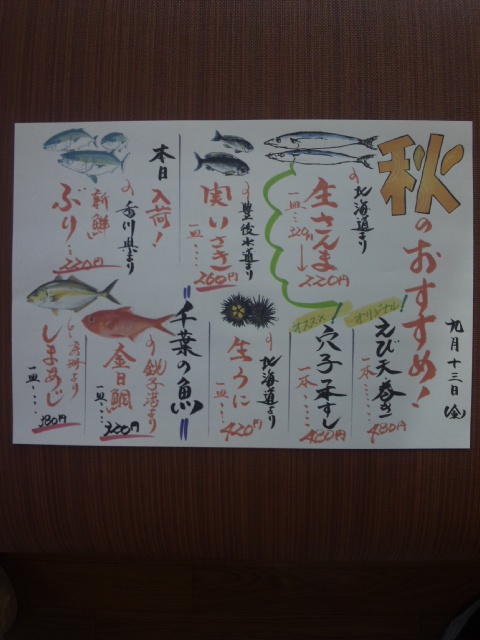 秋のおすすめ!
九月十三日(金)
北海道より
生さんま
一皿…320円→220円
豊後水道より
関いさき
一皿… 260円
本日入荷!
香川県より
新鮮
ぶり… 220円
オリジナル!
えび天巻き
一本…… 480円
オススメ!
穴子一本すし
一本…… 480円
北海道より
生うに
一皿…… 420円
"千葉の魚"
銚子港より
金目鯛
一皿… 220円
しまあじ
一皿…… 180円